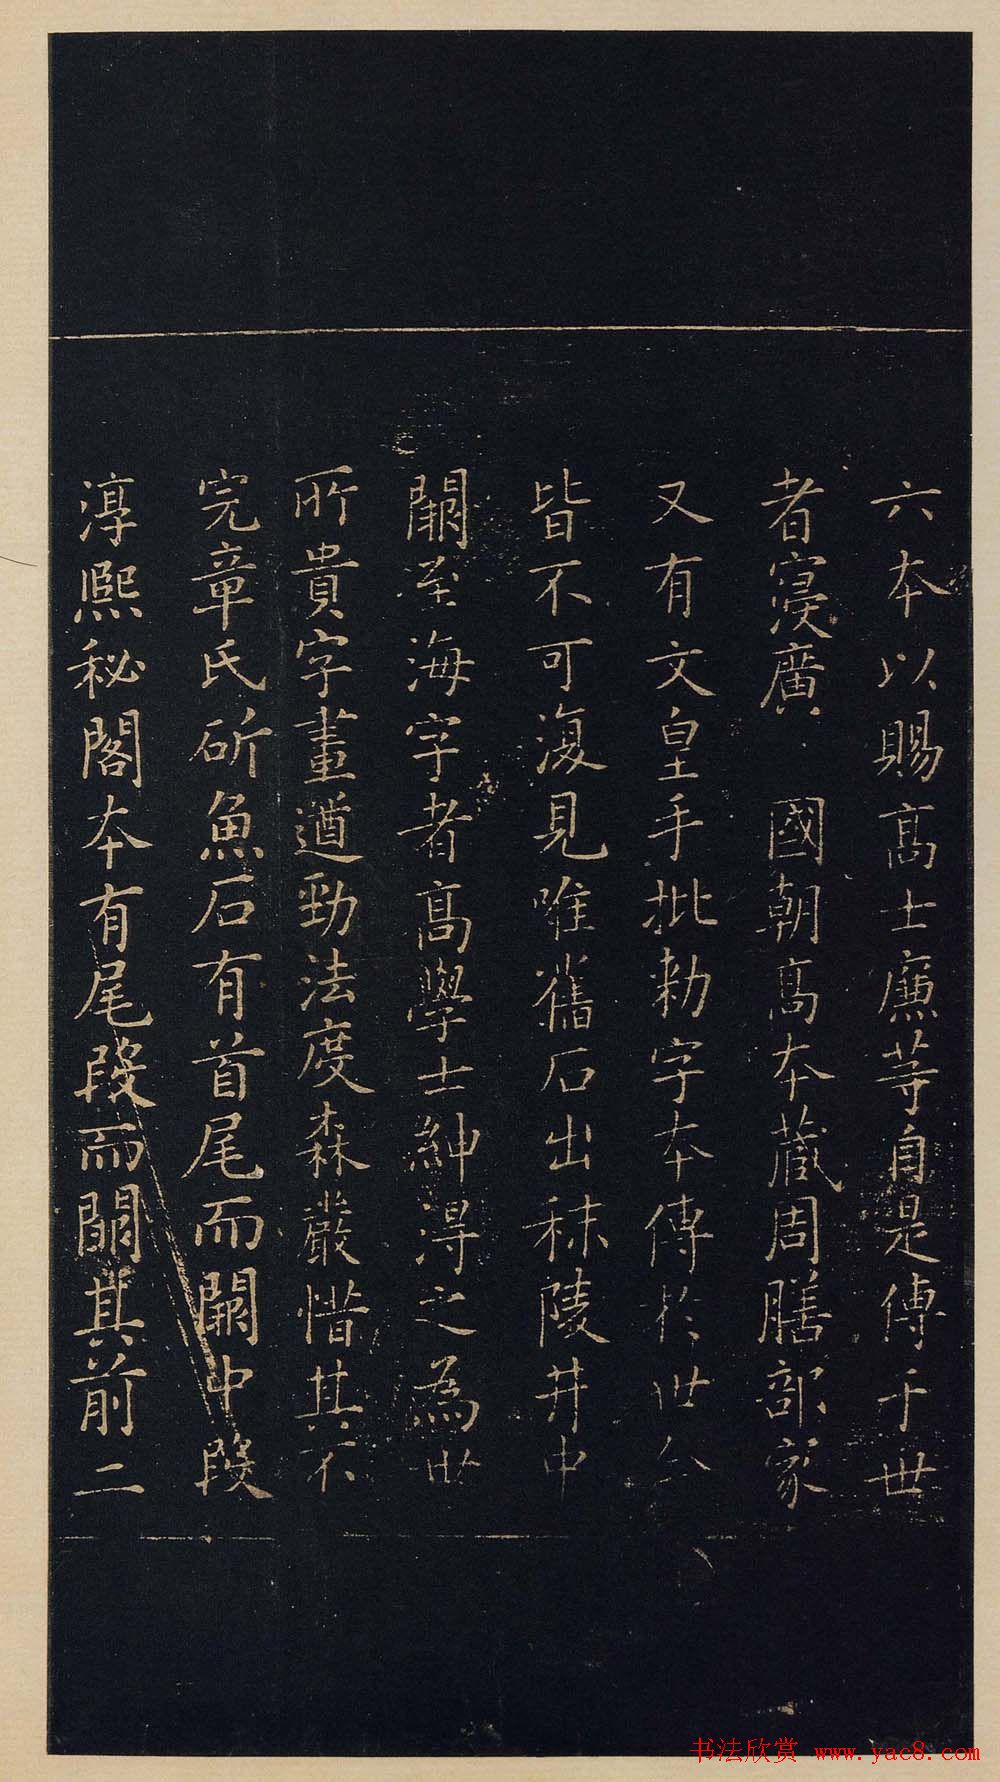 六本以賜高士廉等自是傳于世
者寖廣　國朝高本藏周膳部家
又有文皇手批勅字本傳於世今
皆不可復見唯舊石出秣陵井中
闕至海字者高學士紳得之為世
所貴字畫遒勁法度森嚴惜其不
完章氏斫魚石有首尾而闕中段
淳熙秘閣本有尾段而闕其前二
书法欣赏 www.yac8.com